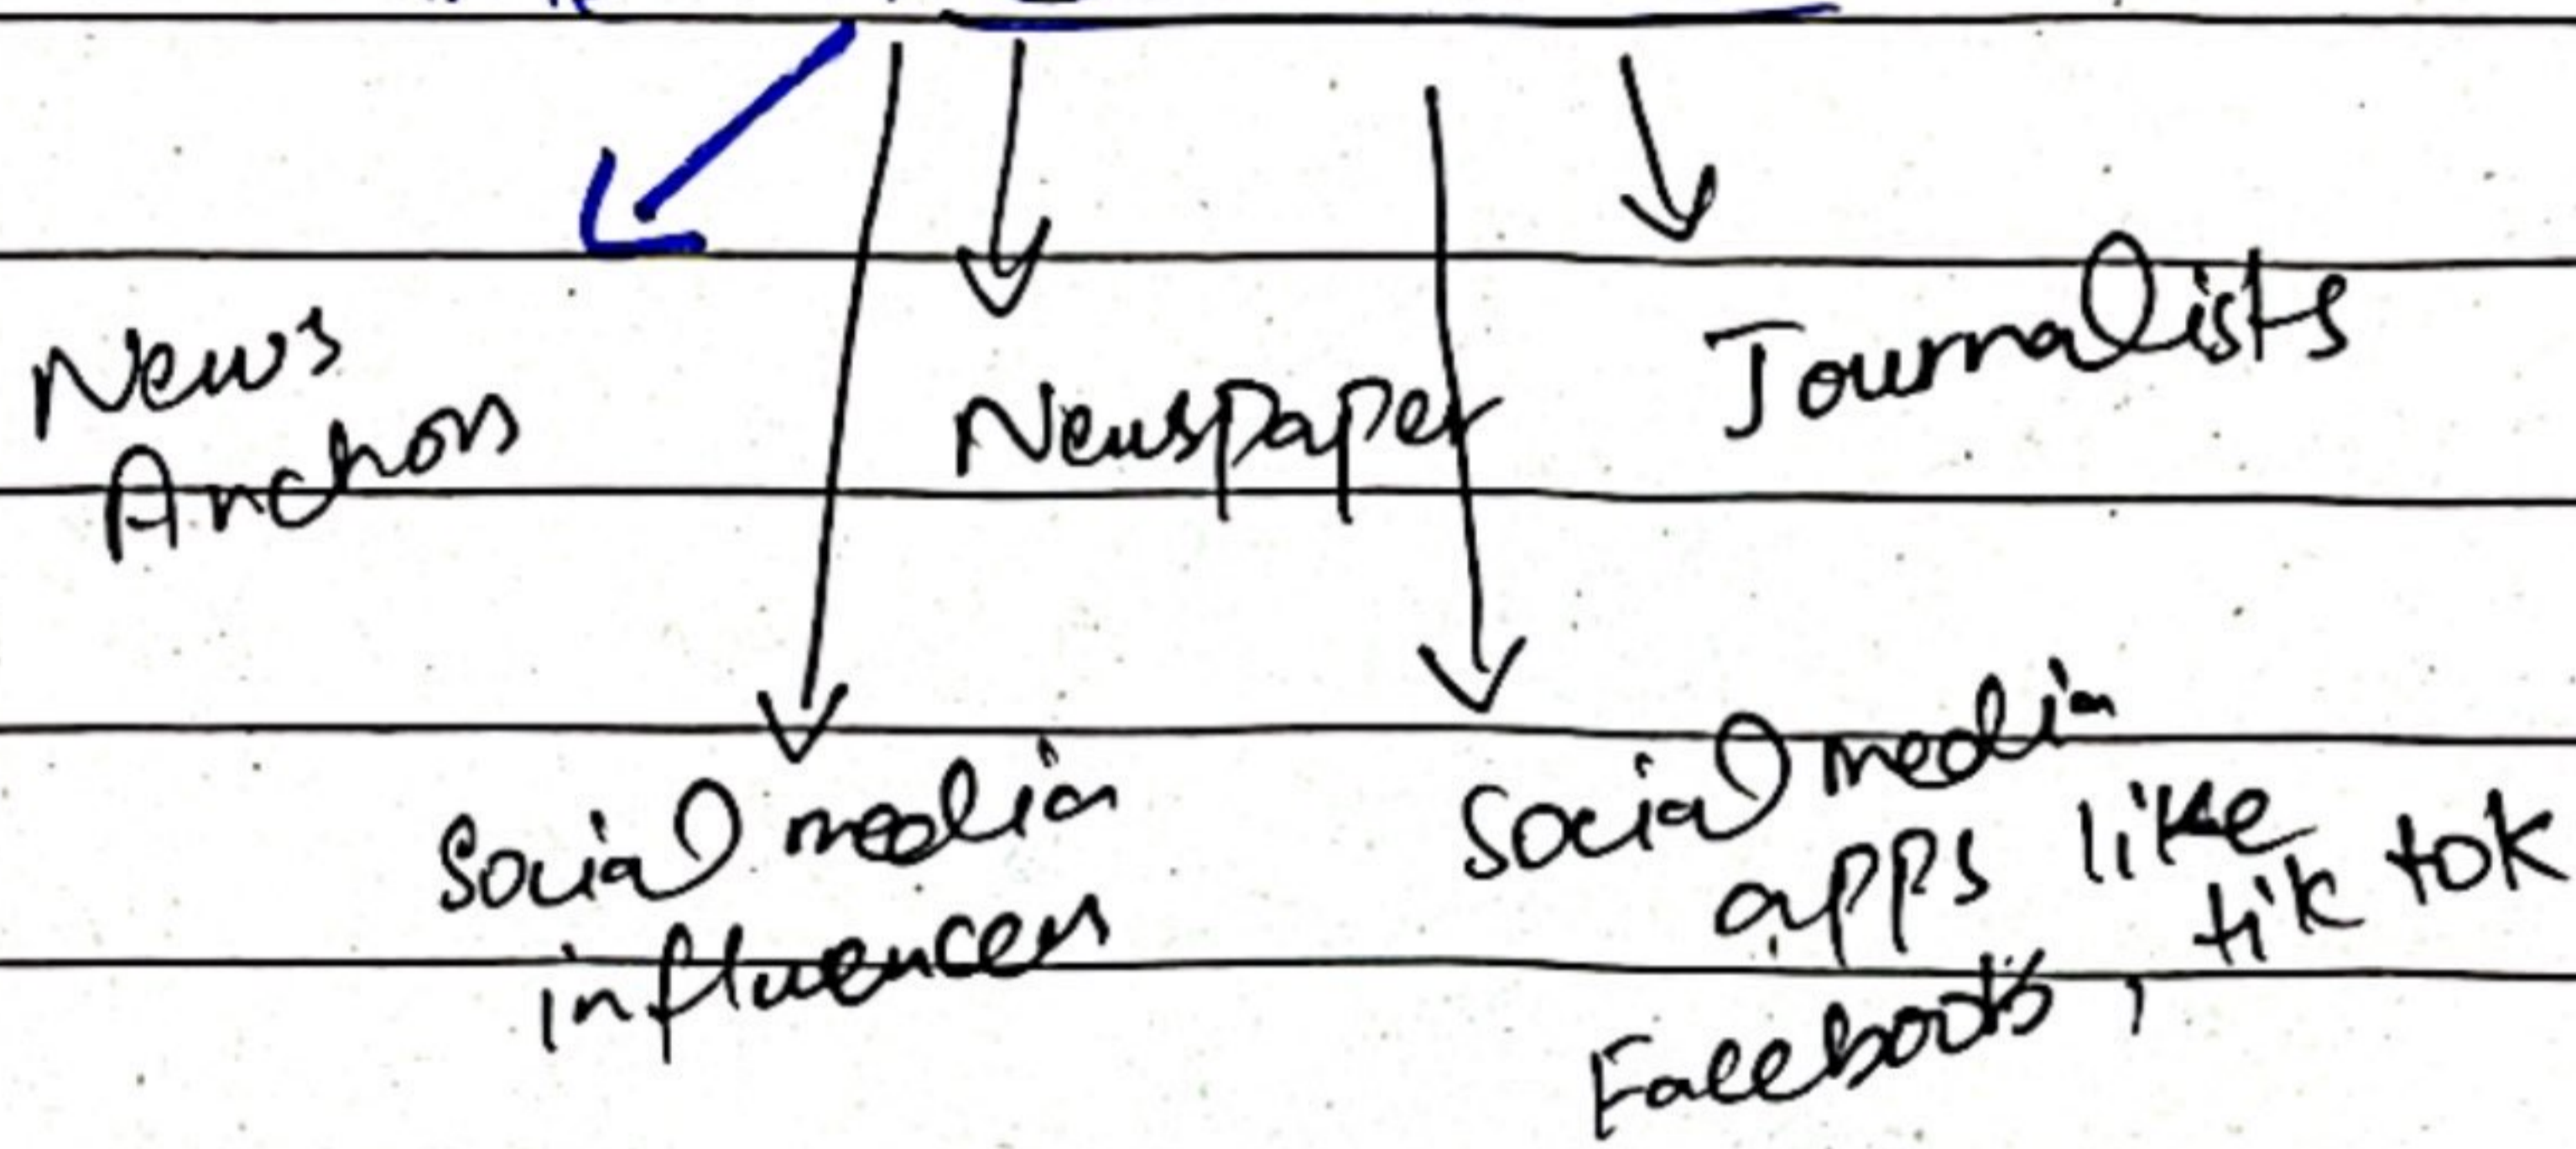 News
Anchors
Newspaper
Journalists
Social media
influencers
Social media
apps like
tik tok
Facebook,